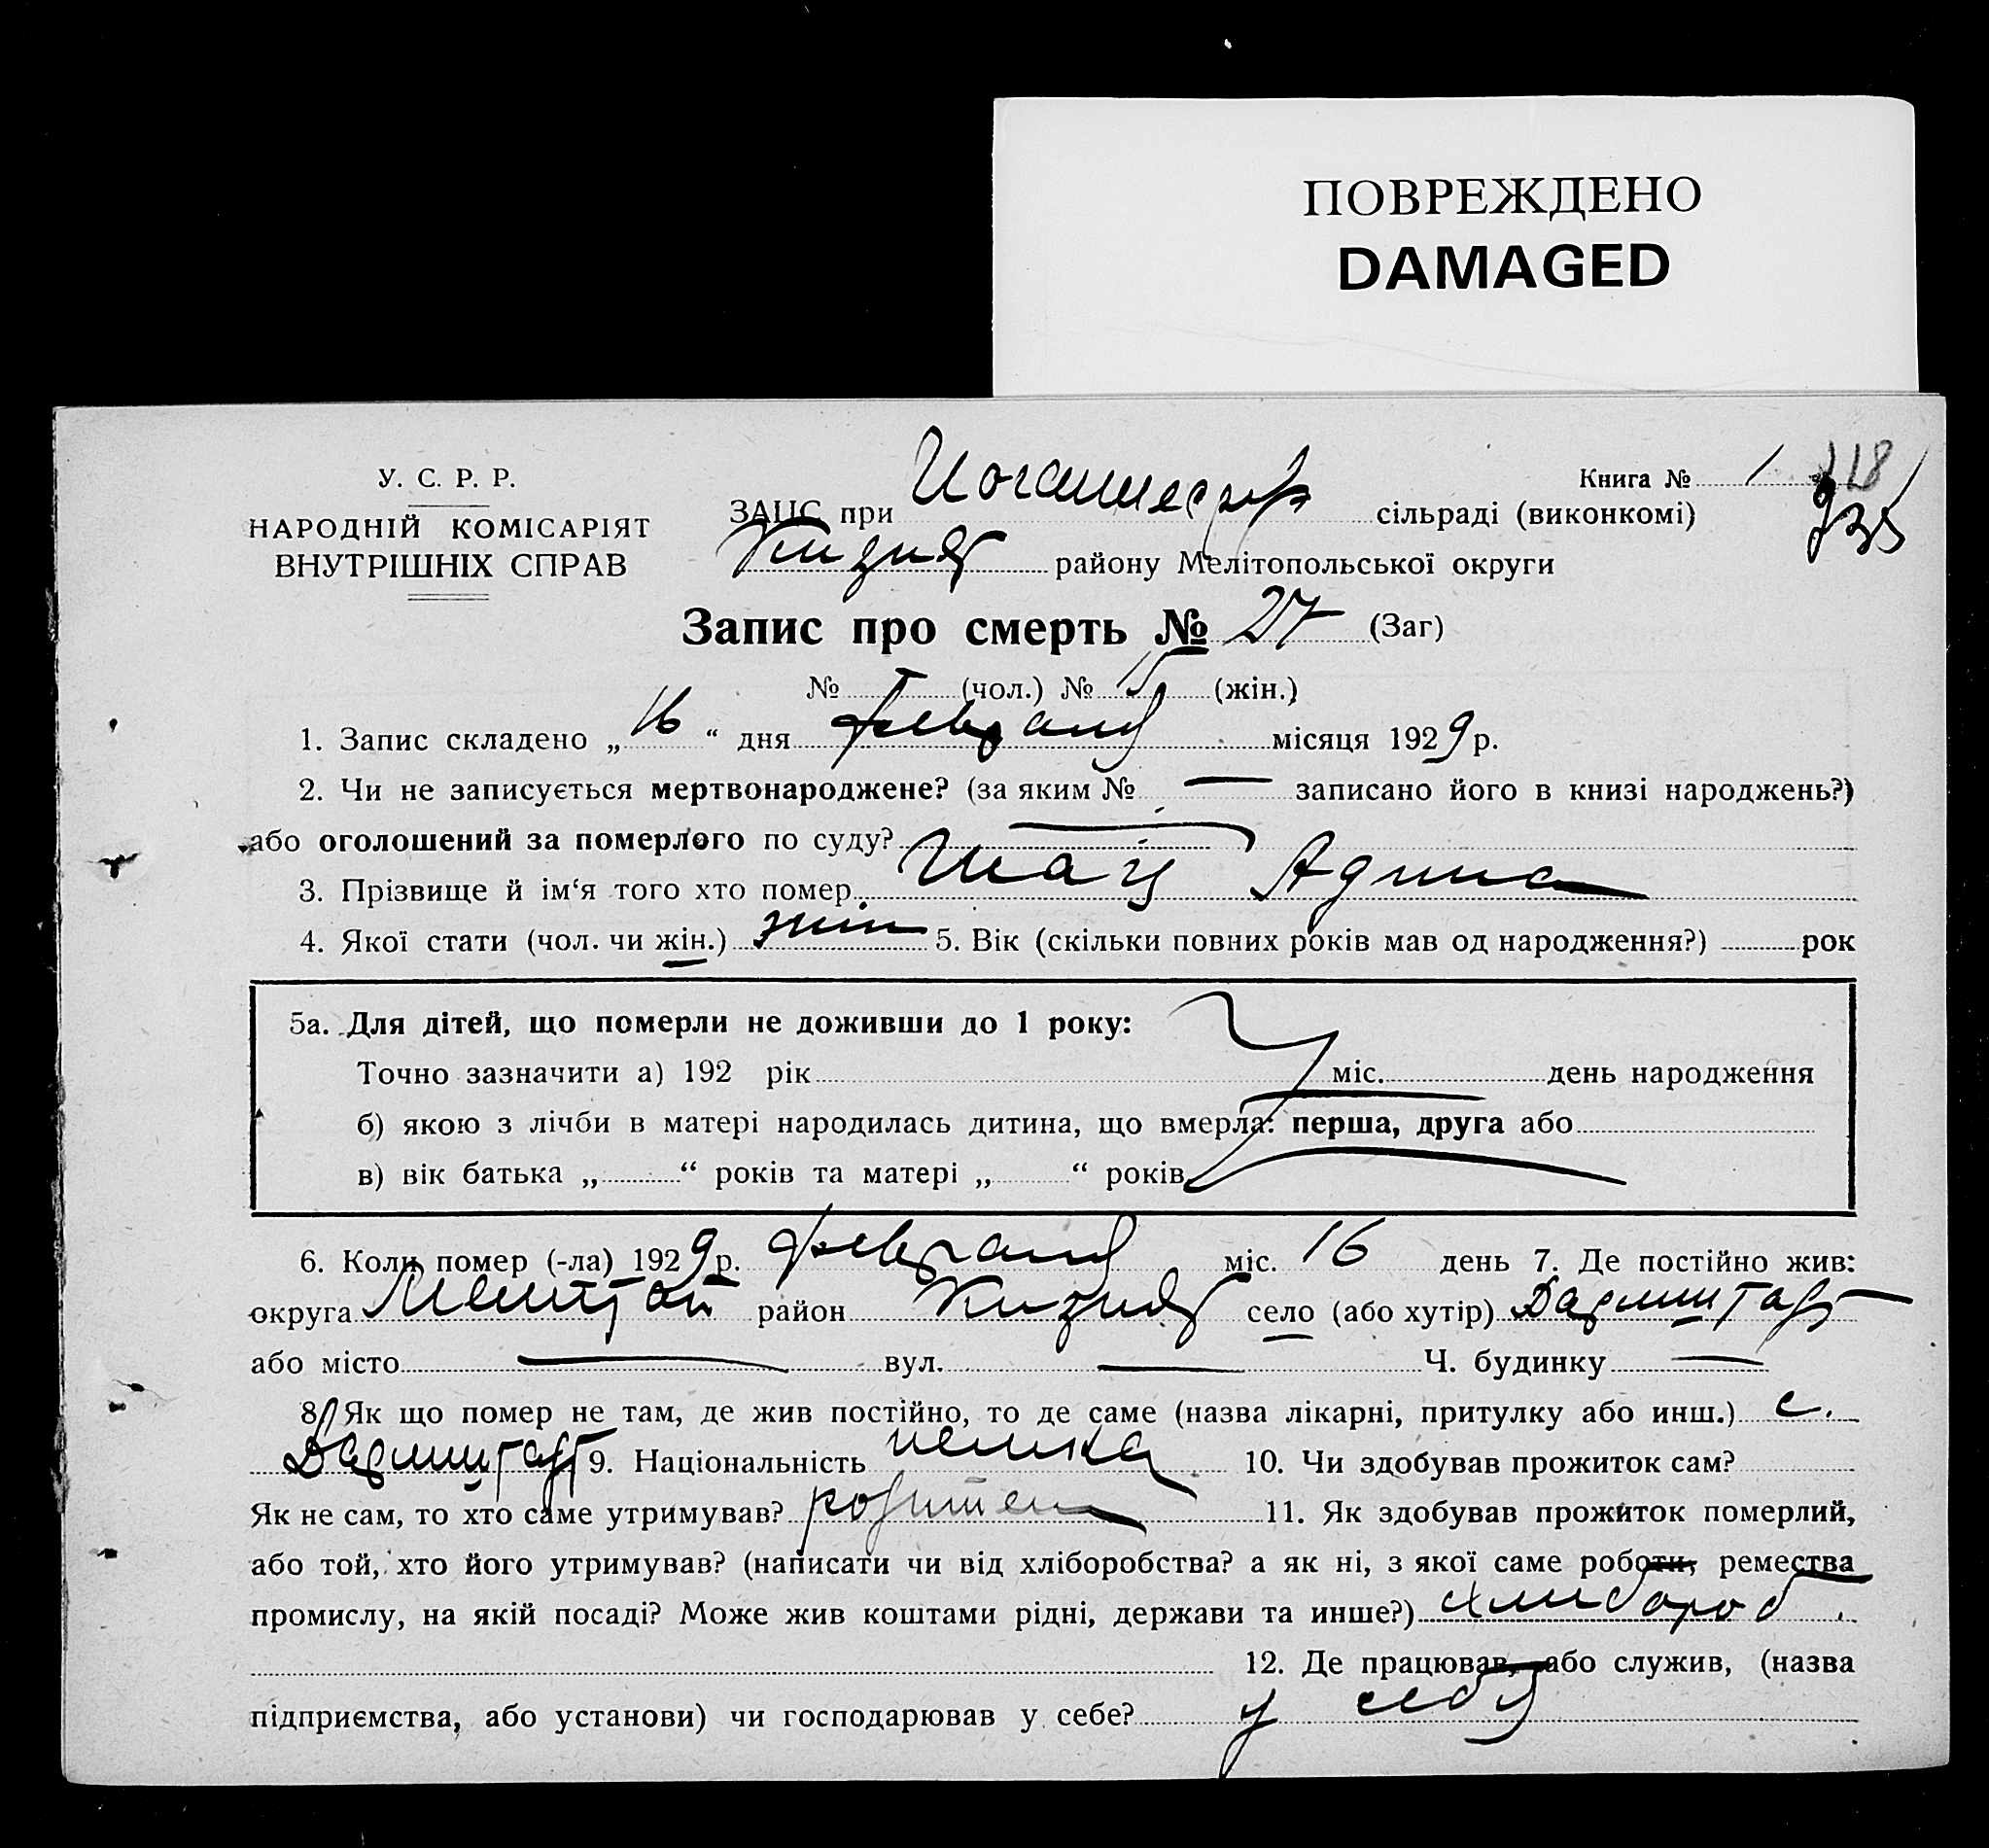 ПОВРЕЖДЕНО
DAMAGED
У. С. Р. Р.
НАРОДНІЙ КОМІСАРІЯТ
ВНУТРІШНІХ СПРАВ
Книга № 1 118
ЗАЦС при сільраді (виконкомі)
району Мелітопольської округи
Запис про смерть № 27 (Заг)
№ (чол.) № (жін.)
1. Запис складено „ 16 “ дня февраля місяця 1929 р.
2. Чи не записується мертвонароджене? (за яким № — записано його в книзі народжень?)
або оголошений за померлого по суду? —
3. Прізвище й ім‘я того хто помер Шац Адина
4. Якої стати (чол. чи жін.) жін 5. Вік (скільки повних років мав од народження?) рок
5а. Для дітей, що померли не доживши до 1 року:
Точно зазначити а) 192 рік міс. день народження
б) якою з лічби в матері народилась дитина, що вмерла: перша, друга або
в) вік батька „ “ років та матері „ “ років
6. Коли помер (-ла) 1929 р. февраля міс. 16 день 7. Де постійно жив:
округа район село (або хутір) Дармштадт
або місто — вул. — Ч. будинку —
8. Як що помер не там, де жив постійно, то де саме (назва лікарні, притулку або инш.) с.
Дармштадт 9. Національність немка 10. Чи здобував прожиток сам?
Як не сам, то хто саме утримував? родители 11. Як здобував прожиток померлий,
або той, хто його утримував? (написати чи від хліборобства? а як ні, з якої саме роботи, ремества
промислу, на якій посаді? Може жив коштами рідні, держави та инше?) хлибороб.
12. Де працював, або служив, (назва
підприємства, або установи) чи господарював у себе? у себя